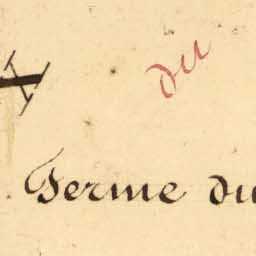 du
Ferme du